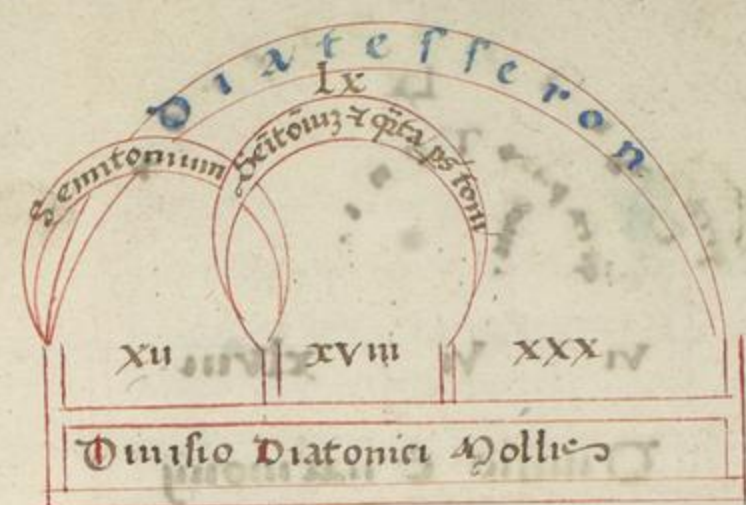 Diatesseron
Lx
Semitonium
Seītōiuʒ ⁊ q̄rta ps toni
xii xviii xxx
Diuisio Diatonici Mollis